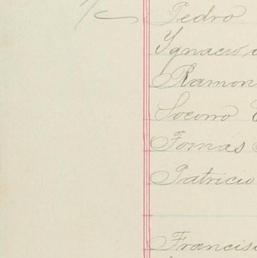 Pedro
Ygnacio
Ramon
Socorro
Tomás
Patricio
Francis